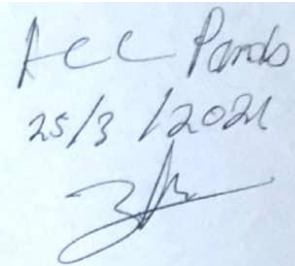 ACC Pards
25/3/2021